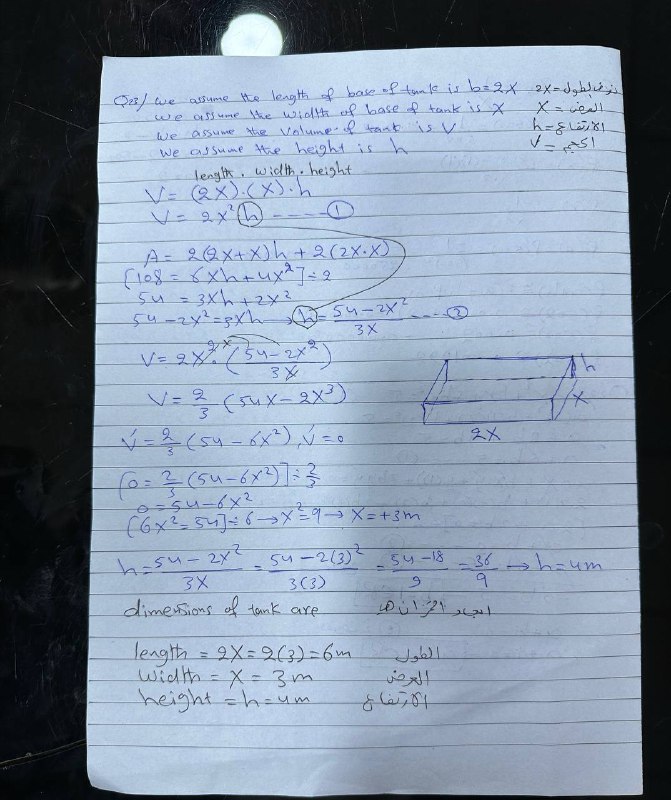 Q23/ we assume the length of base of tank is b=2x نفرض الطول=2x
we assume the width of base of tank is x العرض = x
we assume the volume of tank is V الارتفاع=h
we assume the height is h الحجم = V
length . width . height
V = (2x).(x).h
V = 2x² h ----- ①
A = 2(2x+x)h + 2(2x.x)
[108 = 6xh + 4x²] ÷ 2
54 = 3xh + 2x²
54 - 2x² = 3xh → h = 54-2x² / 3x ---- ②
V = 2x² . (54-2x² / 3x)
V = 2/3 (54x - 2x³)
V́ = 2/3 (54 - 6x²) , V́ = 0
[0 = 2/3 (54-6x²)] ÷ 2/3
0 = 54-6x²
[6x² = 54] ÷ 6 → x² = 9 → x = +3m
h = 54-2x² / 3x = 54-2(3)² / 3(3) = 54-18 / 9 = 36 / 9 → h = 4m
dimensions of tank are ابعاد الخزان هـ
length = 2x = 2(3) = 6m الطول
width = x = 3m العرض
height = h = 4m الارتفاع
h
x
2x